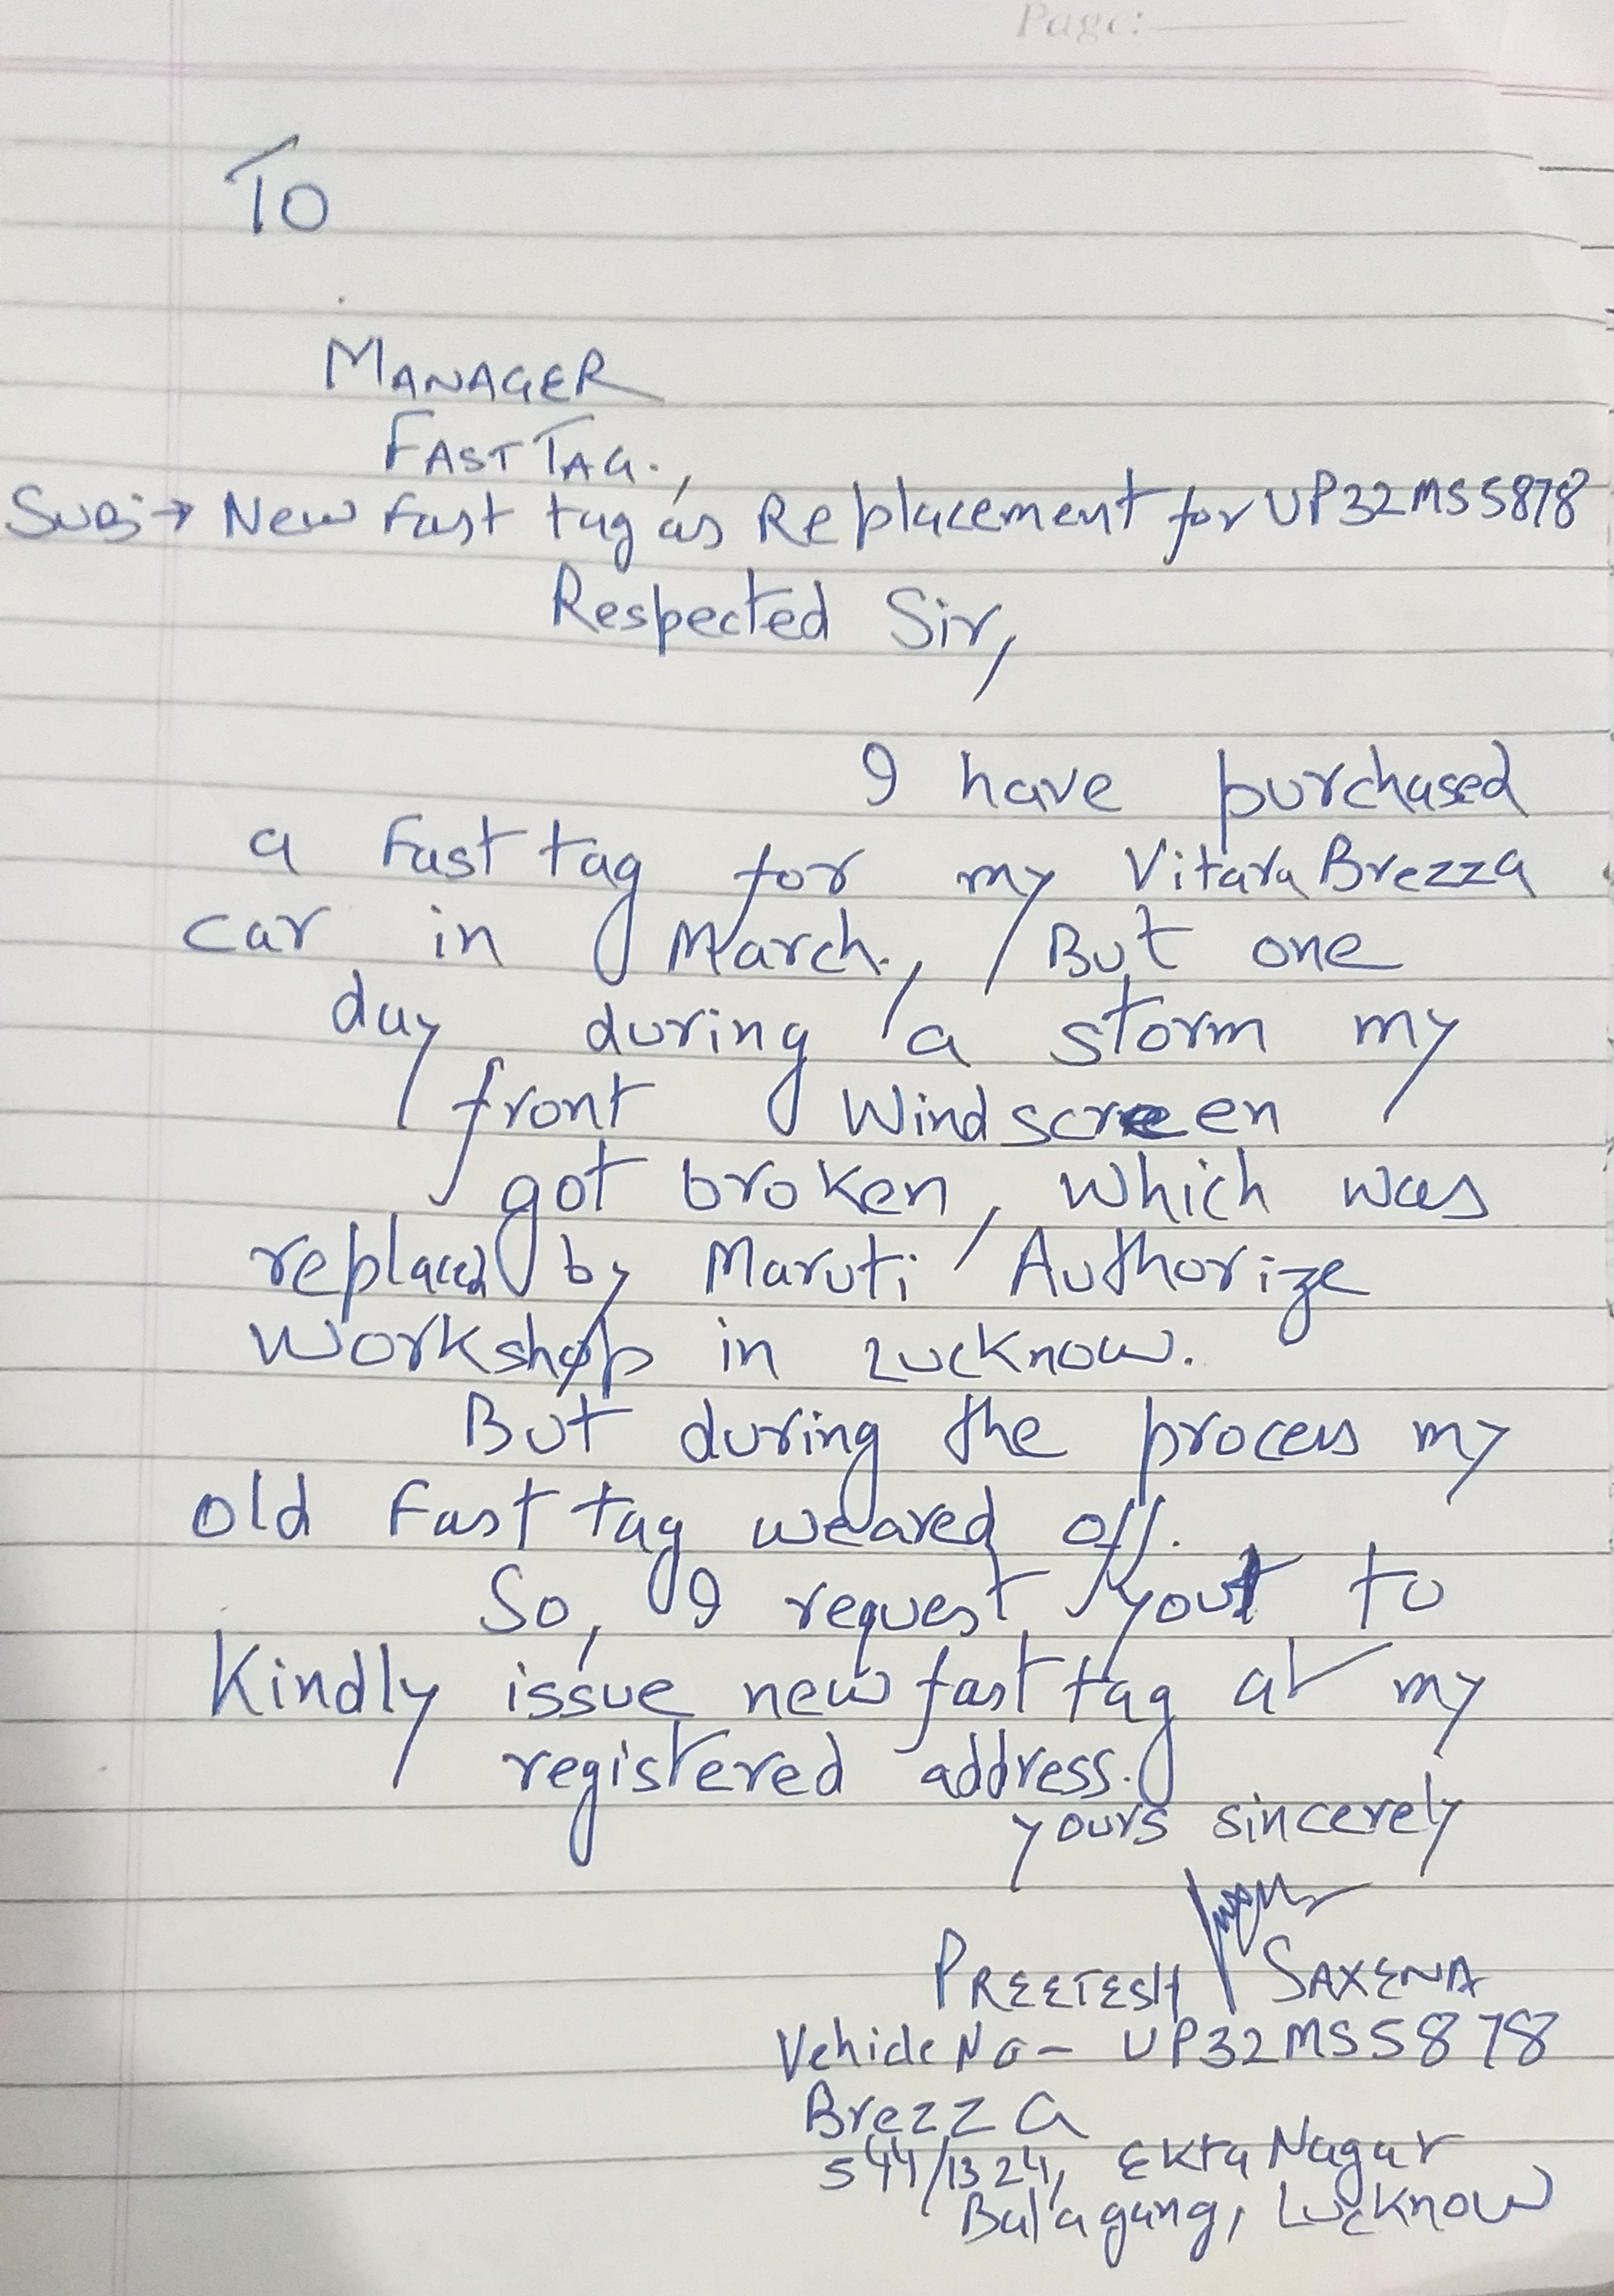 Page:
To
MANAGER
FAST TAG.,
SUB:→ New Fast tag as Replacement for UP32MS5878
Respected Sir,
I have purchased
a Fast tag for my Vitara Brezza
car in March., But one
day during a storm my
front Windscreen
got broken, which was
replaced by Maruti Authorize
Workshop in Lucknow.
But during the process my
old Fast tag weared off.
So, I request you to
Kindly issue new fast tag at my
registered address.
yours sincerely
PREETESH SAXENA
Vehicle No - UP32MS5878
Brezza
544/1324, Ekta Nagar
Balagang, Lucknow